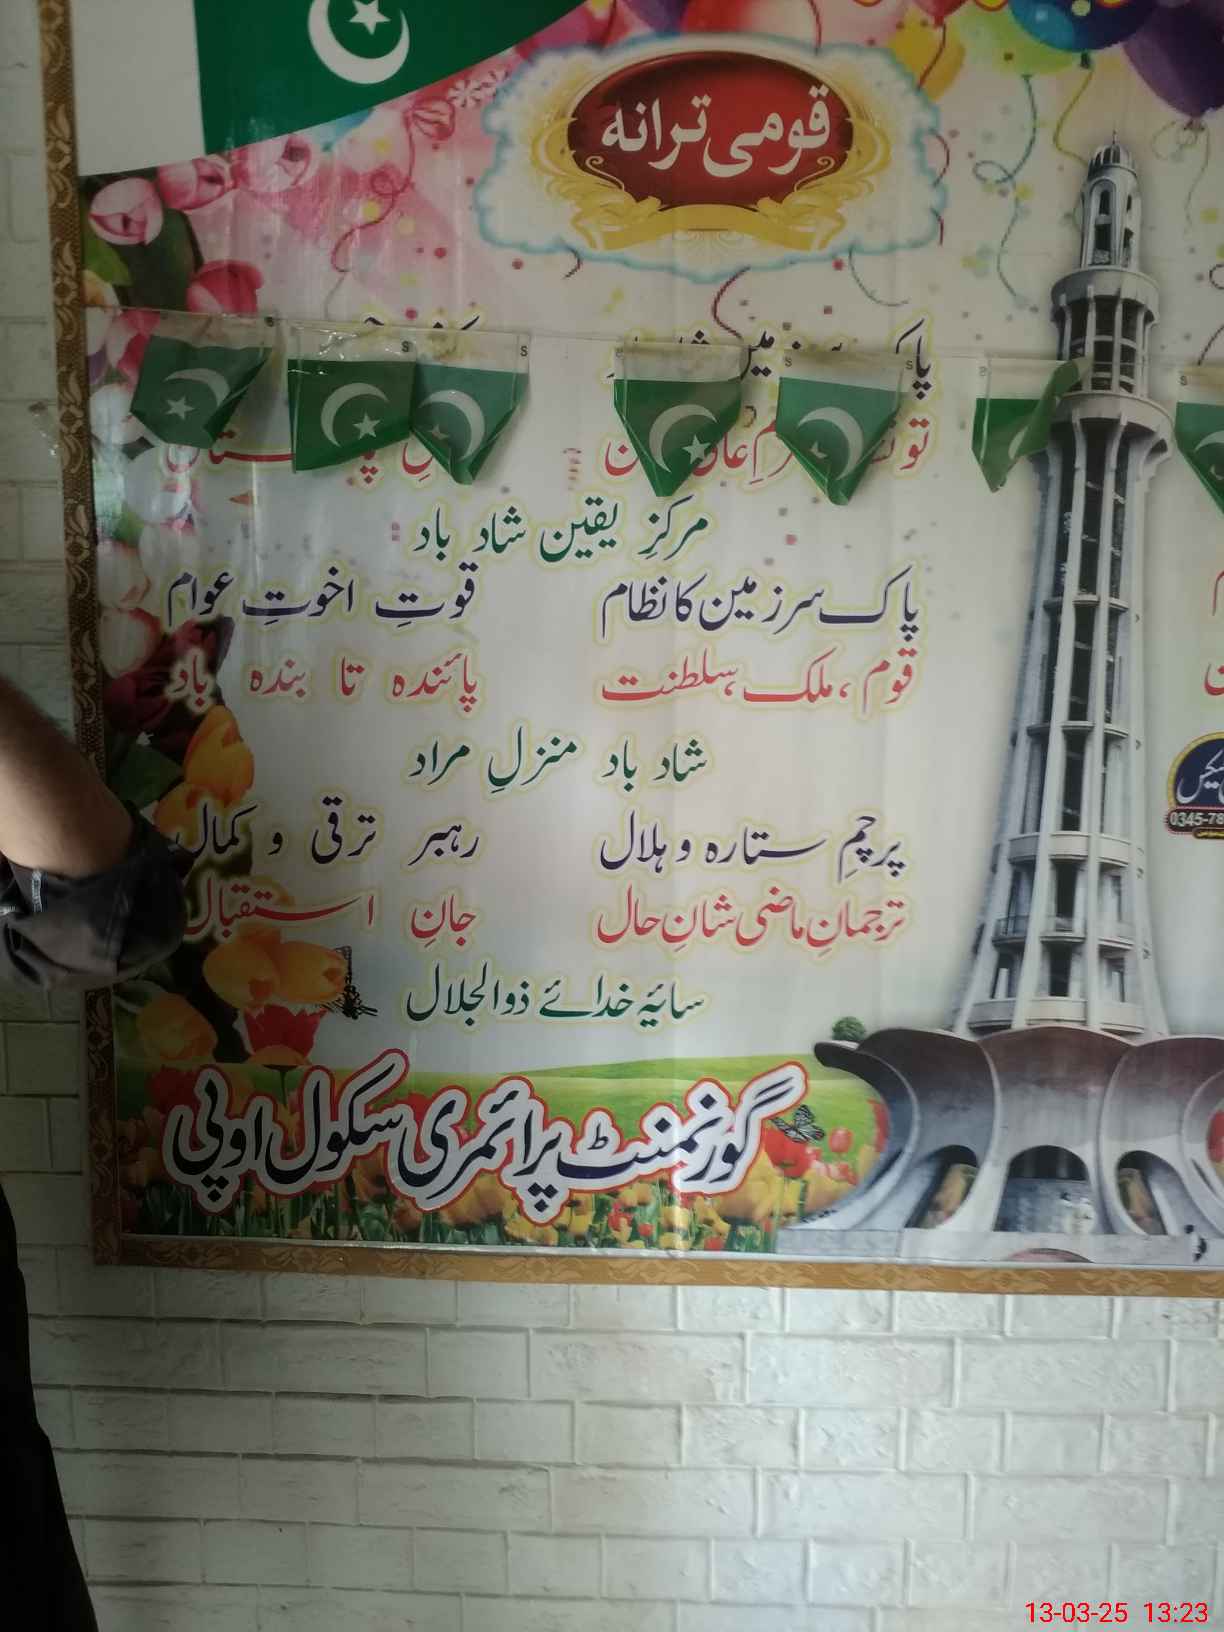 قومی ترانہ
پاک سرزمین
مرکزِ یقین شاد باد
پاک سرزمین کا نظام قوتِ اخوتِ عوام
قوم ، ملک ، سلطنت پائندہ تا بندہ باد
شاد باد منزلِ مراد
پرچمِ ستارہ و ہلال رہبر ترقی و کمال
ترجمانِ ماضی شانِ حال جانِ استقبال
سایۂ خدائے ذوالجلال
گورنمنٹ پرائمری سکول اوپی
0345-78
13-03-25 13:23